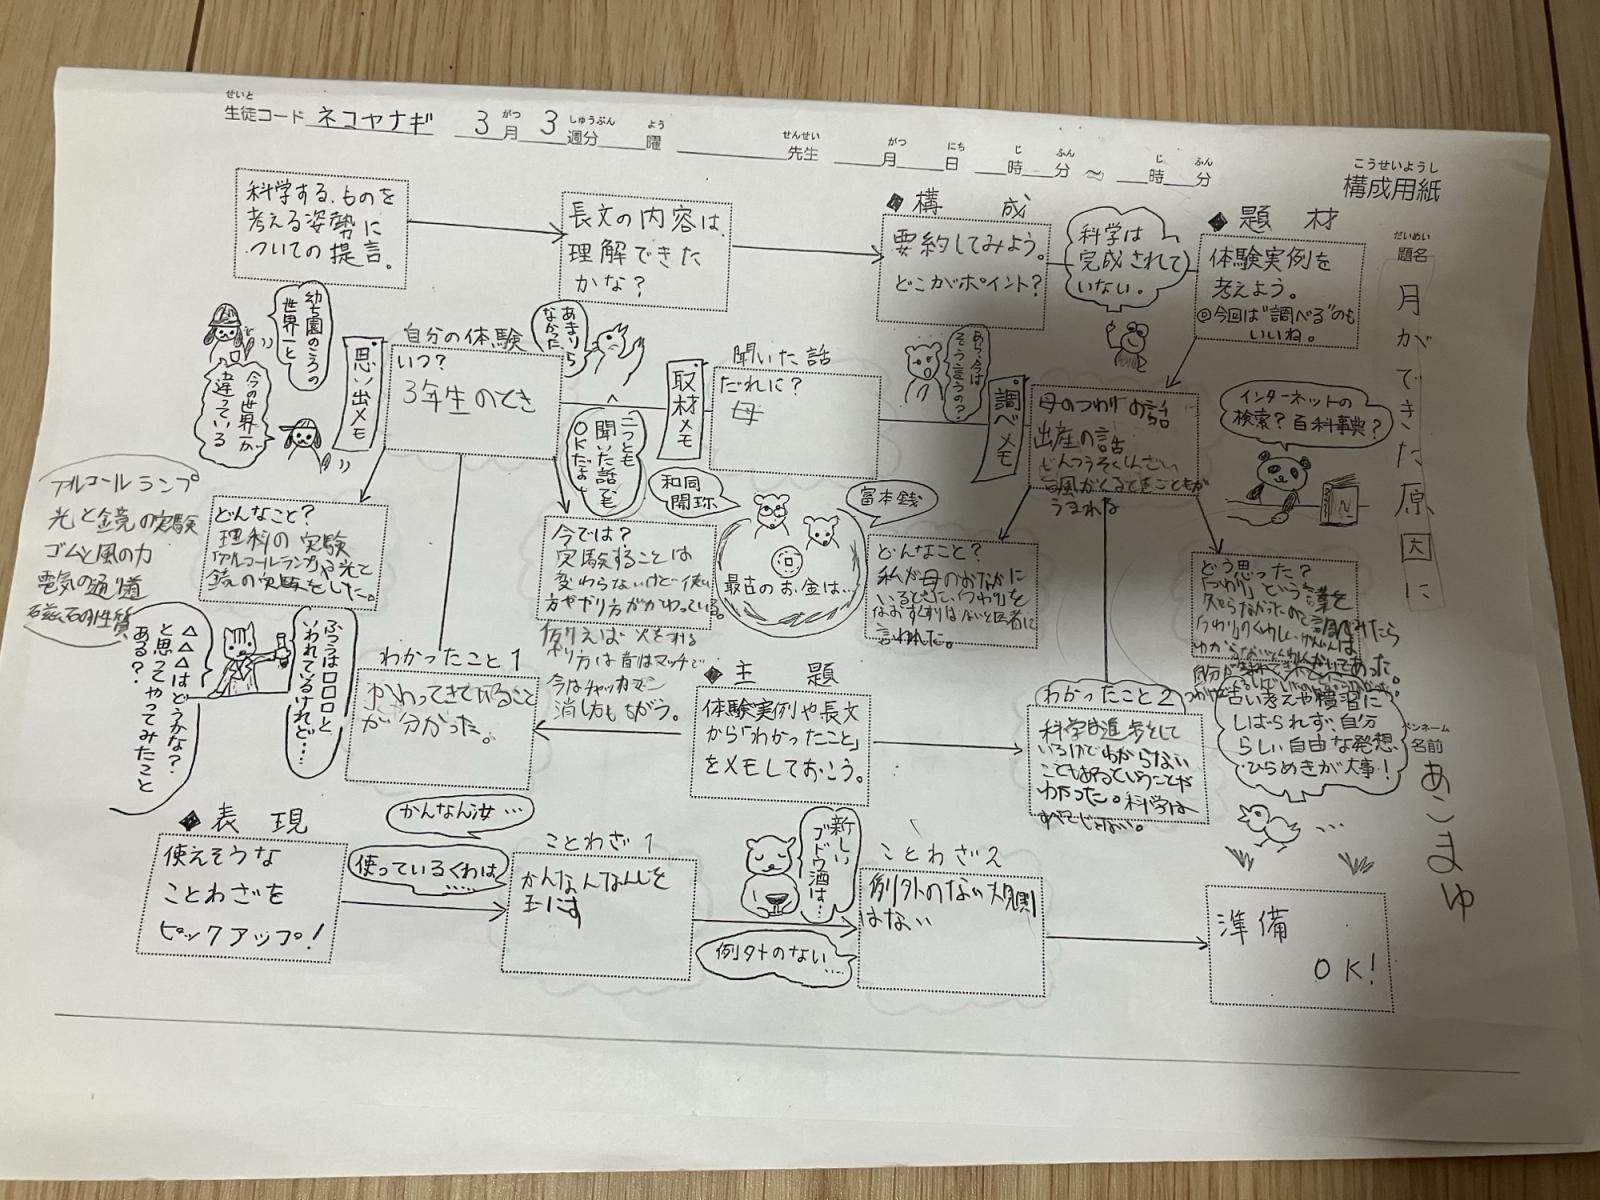 せいと
生徒コード ネコヤナギ 3月 3週分 曜 先生 月 日 時 分 ~ 時 分
がつ しゅうぶん よう せんせい がつ にち じ ふん じ ふん
こうせいようし
構成用紙
だいめい
題名
月ができた原因に
ペンネーム
名前
あこまゆ
科学する、ものを
考える姿勢に
ついての提言。
長文の内容は、
理解できた
かな?
◆構成
要約してみよう。
どこがポイント?
科学は
完成されて
いない。
◆題材
体験実例を
考えよう。
◎今回は“調べる”のも
いいね。
幼ち園のころの
世界一と
今の世界一が
違っている
思い出メモ
自分の体験
いつ?
3年生のとき
あまりら
なかった
二つとも
聞いた話でも
OKだよ。
取材メモ
聞いた話
だれに?
母
あら今は
そう言うの?
調べメモ
母のつわりの話
出産の話
インターネットの
検索?百科事典?
アルコールランプ
光と鏡の実験
ゴムと風の力
電気の通り道
磁石の性質
どんなこと?
理科の実験
アルコールランプや光で
鏡の実験をした。
今では?
実験することは
変わらないけど使い
方ややり方がかわっている。
例えば火をする
やり方は昔はマッチで
今はチャッカマン
消し方もちがう。
和同
開珎
富本銭
最古のお金は…
どんなこと?
私が母のおなかに
いるときに、「つわり」を
なおすくすりはないと医者に
言われた。
どう思った?
「つわり」という言葉を
知らなかったので調べたら
△△△はどうかな?
と思ってやってみたこと
ある?
ふつうは□□□□と
いわれているけれど…
わかったこと1
かわってきていること
が分かった。
◆主題
体験実例や長文
から「わかったこと」
をメモしておこう。
わかったこと2
科学は進歩をして
いるけどわからない
こともあるということが
わかった。科学は
すべてじゃない。
古い考えや慣習に
しばられず、自分
らしい自由な発想、
ひらめきが大事!
◆表現
使えそうな
ことわざを
ピックアップ!
かんなん汝…
使っているくわは
……
ことわざ1
かんなんなんじを
玉にす
新しい
ブドウ酒は…
例外のない
……
ことわざ2
例外のない大規則
はない
準備
OK!